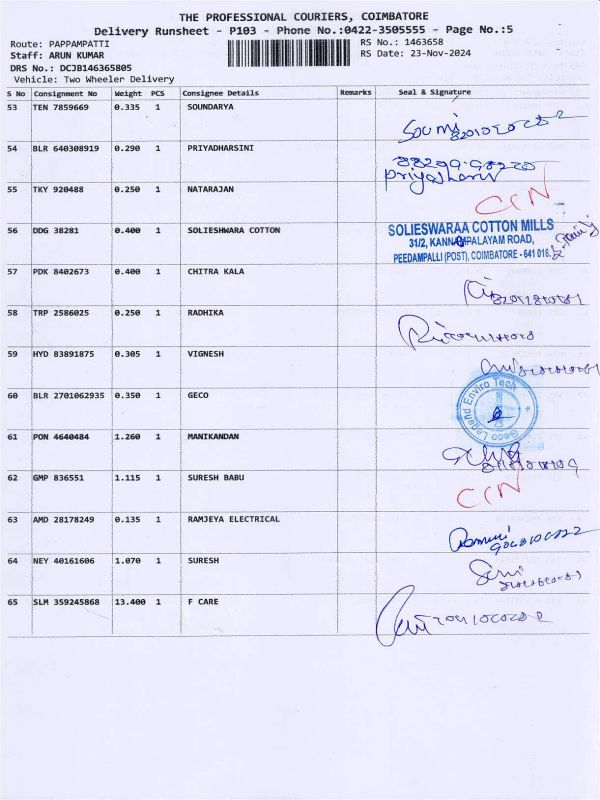 THE PROFESSIONAL COURIERS, COIMBATORE
Delivery Runsheet - P103 - Phone No.:0422-3505555 - Page No.:5
Route: PAPPAMPATTI RS No.: 1463658
Staff: ARUN KUMAR RS Date: 23-Nov-2024
DRS No.: DCJB146365805
Vehicle: Two Wheeler Delivery
S No Consignment No Weight PCS Consignee Details Remarks Seal & Signature
53 TEN 7859669 0.335 1 SOUNDARYA
Soumi
54 BLR 640308919 0.290 1 PRIYADHARSINI
Priyadharsi
55 TKY 920488 0.250 1 NATARAJAN
CCN
56 DDG 38281 0.400 1 SOLIESHWARA COTTON
SOLIESWARAA COTTON MILLS
31/2, KANNAMPALAYAM ROAD,
PEEDAMPALLI (POST), COIMBATORE - 641 016.
57 PDK 8402673 0.400 1 CHITRA KALA
58 TRP 2586025 0.250 1 RADHIKA
59 HYD 83891875 0.305 1 VIGNESH
60 BLR 2701062935 0.350 1 GECO
Geco Legend Enviro Tech
61 PON 4640484 1.260 1 MANIKANDAN
62 GMP 836551 1.115 1 SURESH BABU
CCN
63 AMD 28178249 0.135 1 RAMJEYA ELECTRICAL
64 NEY 40161606 1.070 1 SURESH
65 SLM 359245868 13.400 1 F CARE